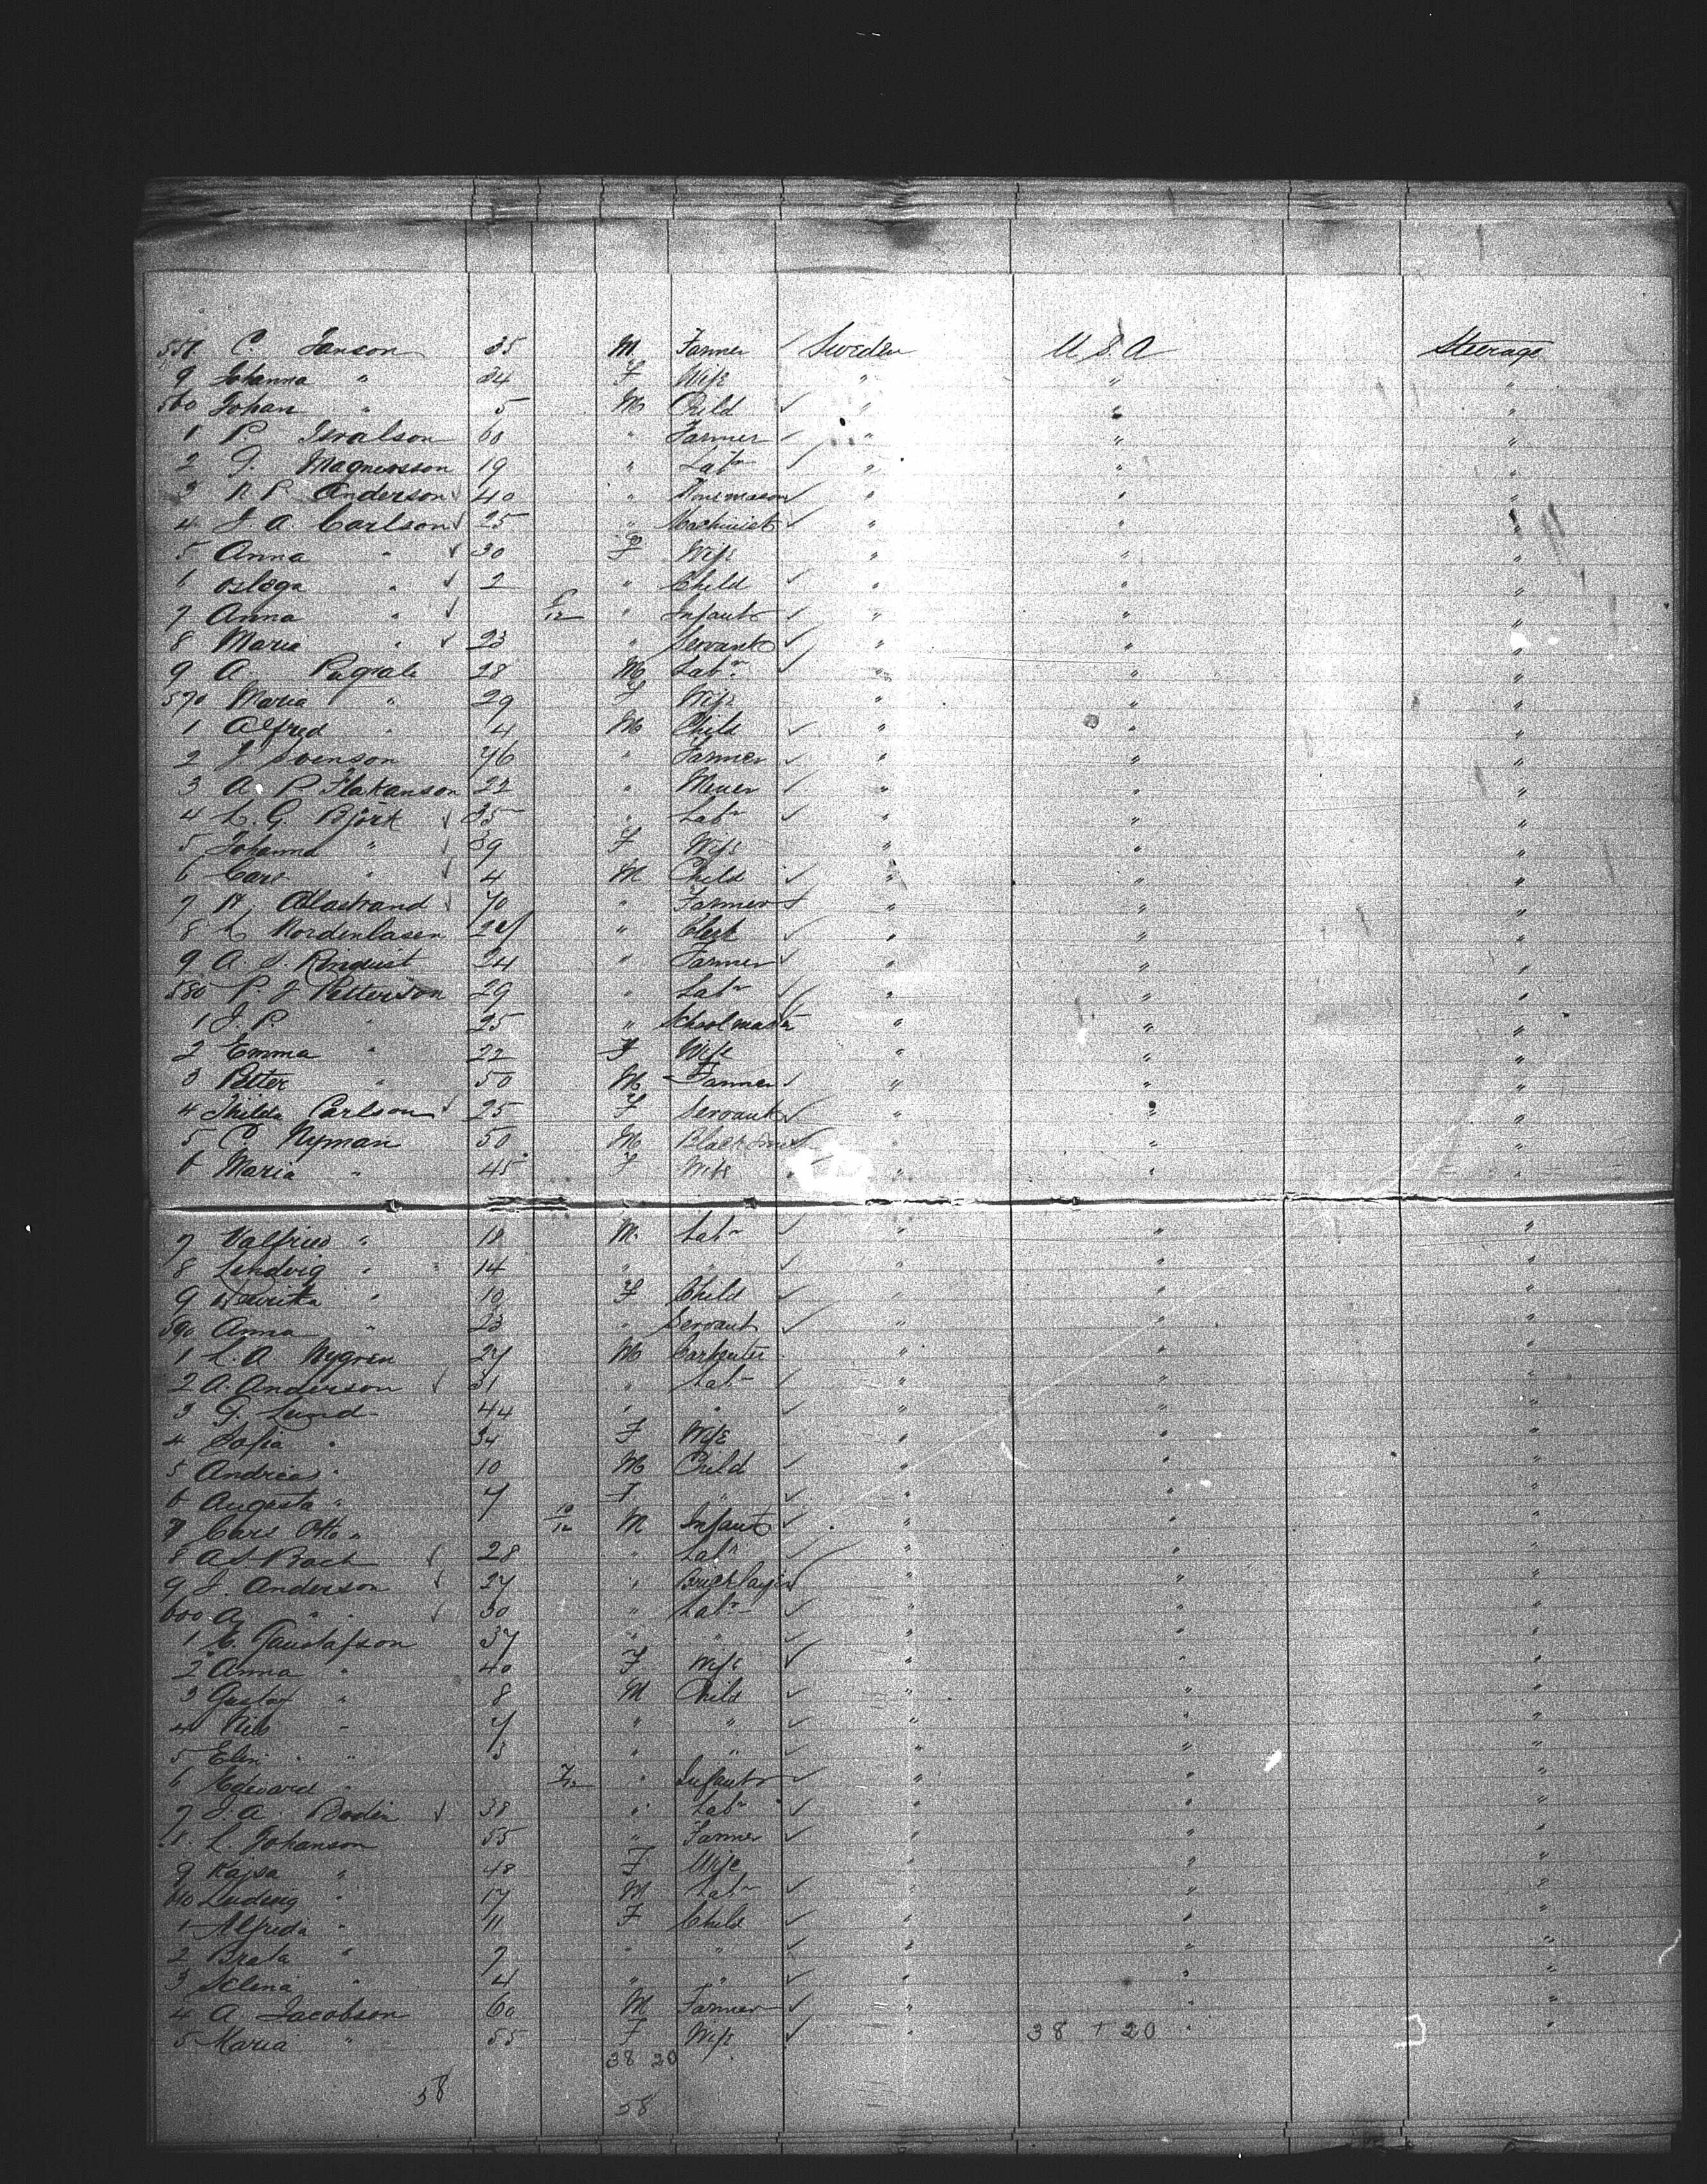 558 C. Janson 35 M Farmer ✓ Sweden U.S.A Steerage
9 Johanna " 34 F Wife " " "
560 Johan " 5 M Child ✓ " " "
1 P. Isralson 60 " Farmer ✓ " " "
2 J. Magnusson 19 " Labr ✓ " " "
3 N. P. Anderson ✓ 40 " Stonemason ✓ " " "
4 J. A. Carlson ✓ 25 " Machinist ✓ " " "
5 Anna " ✓ 30 F Wife " " "
6 " ✓ 2 " Child ✓ " " "
7 Anna " ✓ /12 " Infant ✓ " " "
8 Maria " ✓ 23 " Servant ✓ " " "
9 A. 28 M Labr ✓ " " "
570 Maria " 29 F Wife " " "
1 Alfred " 4 M Child ✓ " " "
2 J. Svenson 46 " Farmer ✓ " " "
3 A. P. Hakanson 22 " ✓ " " "
4 L. G. Björk ✓ 35 " Labr ✓ " " "
5 Johanna " ✓ 39 F Wife " " "
6 Carl " ✓ 4 M Child ✓ " " "
7 ✓ 70 " Farmer ✓ " " "
8 L. 24 " Clerk ✓ " " "
9 A. S. Renquist 24 " Farmer ✓ " " "
580 P. J. Petterson 29 " Labr ✓ " " "
1 J. P. " 25 " Schoolmastr ✓ " " "
2 Emma " 22 F Wife " " "
3 Petter " 50 M Farmer ✓ " " "
4 Thilda Carlson ✓ 25 F Servant ✓ " " "
5 C. Nyman 50 M Blacksmith ✓ " " "
6 Maria " 45 F Wife " " "
7 Valfried " 18 M. Labr ✓ " " "
8 Ludvig " 14 " " ✓ " " "
9 " 10 F Child ✓ " " "
590 Anna " 23 " Servant ✓ " " "
1 L. A. Nygren 27 M Carpenter " " "
2 A. Anderson ✓ 31 " Labr ✓ " " "
3 G. Lund 44 " " ✓ " " "
4 Sofia " 34 F Wife " " "
5 Andreas " 10 M Child ✓ " " "
6 Augusta " 7 F " ✓ " " "
7 Carl Otto " 10/12 M Infant ✓ " " "
8 A. S. Back ✓ 28 " Labr ✓ " " "
9 J. Anderson ✓ 27 " Bricklayer ✓ " " "
600 A. " ✓ 30 " Labr ✓ " " "
1 C. Gustafson 37 " " ✓ " " "
2 Anna " 40 F Wife ✓ " " "
3 Gustaf " 8 M Child ✓ " " "
4 Nils " 7 " " ✓ " " "
5 Elin " 3 " " ✓ " " "
6 Edward " 7/12 " Infant ✓ " " "
7 J. A. Bodin ✓ 38 " Labr ✓ " " "
8 L. Johanson 55 " Farmer ✓ " " "
9 Kajsa " 48 F Wife " " "
610 Ludvig " 17 M Labr ✓ " " "
1 Alfreda " 11 F Child ✓ " " "
2 Brata " 7 " " ✓ " " "
3 Selena " 4 " " ✓ " " "
4 A. Jacobson 60 M Farmer ✓ " " "
5 Maria " 55 F Wife ✓ " 38 + 20 " "
38 20
58 58